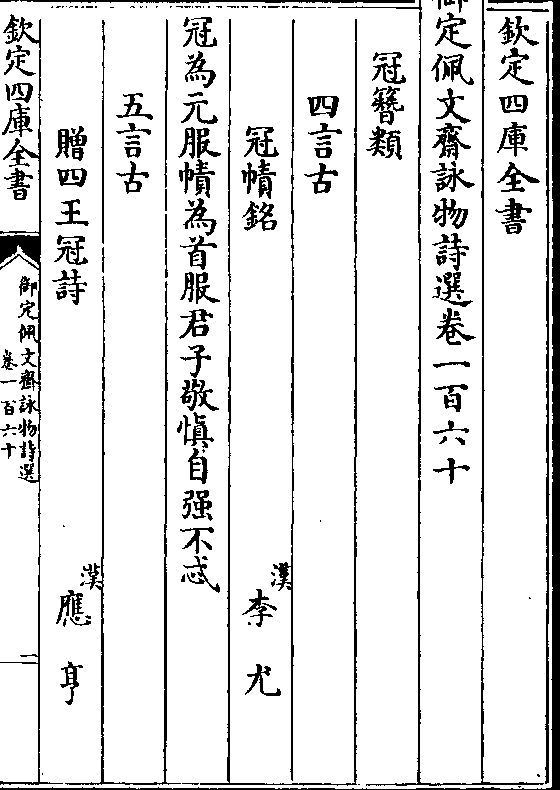 欽定四庫全書
御定佩文齋詠物詩選卷一百六十
冠簪類
四言古
冠幘銘
漢
李尤
冠為元服幘為首服君子敬慎自强不忒
五言古
贈四王冠詩
漢
應亨
欽定四庫全書
御定佩文齋詠物詩選
卷一百六十
一